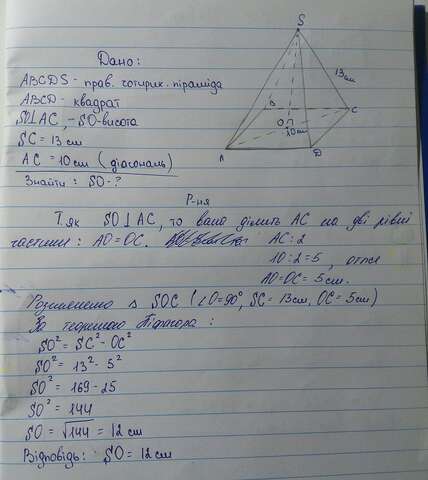 Дано:
ABCDS - прав. чотирик. піраміда
ABCD - квадрат
SO⊥AC, - SO - висота
SC = 13 см
AC = 10 см (діагональ)
Знайти: SO - ?
S
13 см
B
C
O
10 см
A
D
Р-ня
Т. як SO⊥AC, то вона ділить AC на дві рівні
частини: AO = OC. AC : 2
10 : 2 = 5, отже
AO = OC = 5 см.
Розглянемо Δ SOC (∠O = 90°, SC = 13 см, OC = 5 см)
За теоремою Піфагора:
SO² = SC² - OC²
SO² = 13² - 5²
SO² = 169 - 25
SO² = 144
SO = √144 = 12 см
Відповідь: SO = 12 см